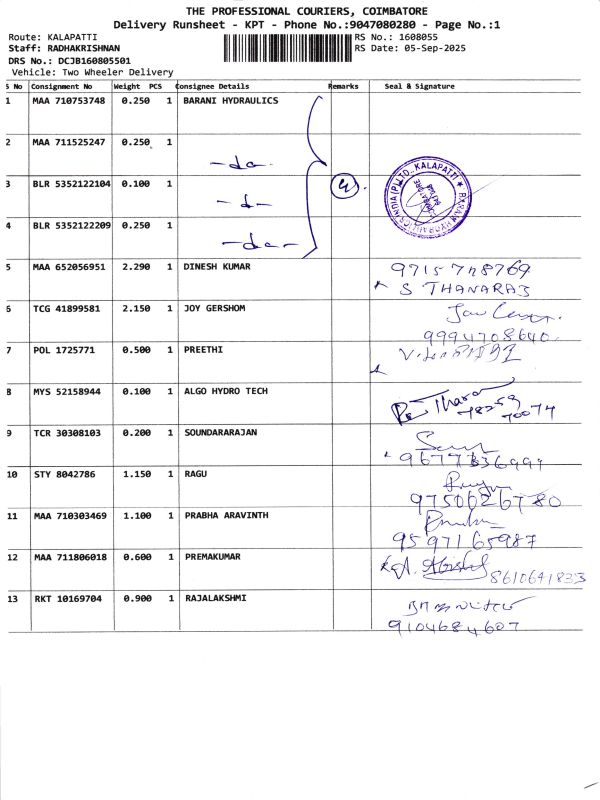 THE PROFESSIONAL COURIERS, COIMBATORE
Delivery Runsheet - KPT - Phone No.:9047080280 - Page No.:1
Route: KALAPATTI RS No.: 1608055
Staff: RADHAKRISHNAN RS Date: 05-Sep-2025
DRS No.: DCJB160805501
Vehicle: Two Wheeler Delivery
S No Consignment No Weight PCS Consignee Details Remarks Seal & Signature
1 MAA 710753748 0.250 1 BARANI HYDRAULICS
2 MAA 711525247 0.250 1
-do-
3 BLR 5352122104 0.100 1 4
-d-
4 BLR 5352122209 0.250 1
-do-
KALAPATTI
5 MAA 652056951 2.290 1 DINESH KUMAR
S THANARAJ
6 TCG 41899581 2.150 1 JOY GERSHOM
9994708640
7 POL 1725771 0.500 1 PREETHI
8 MYS 52158944 0.100 1 ALGO HYDRO TECH
9 TCR 30308103 0.200 1 SOUNDARARAJAN
10 STY 8042786 1.150 1 RAGU
9750626780
11 MAA 710303469 1.100 1 PRABHA ARAVINTH
9597165987
12 MAA 711806018 0.600 1 PREMAKUMAR
8610641833
13 RKT 10169704 0.900 1 RAJALAKSHMI
9104684607